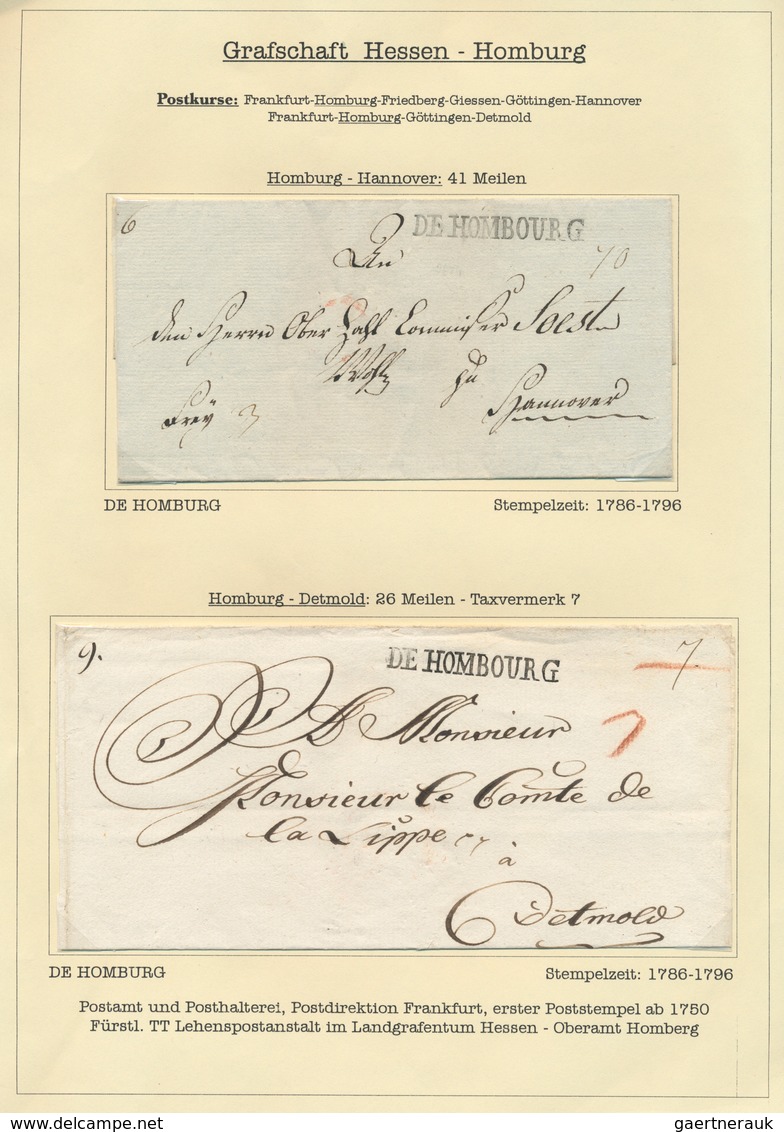 Grafschaft Hessen - Homburg
Postkurse: Frankfurt-Homburg-Friedberg-Giessen-Göttingen-Hannover
Frankfurt-Homburg-Göttingen-Detmold
Homburg - Hannover: 41 Meilen
6
DE HOMBOURG
An
den Herrn Ober Zahl Commissær Soest
zu
Hannover
Frey
DE HOMBURG
Stempelzeit: 1786-1796
Homburg - Detmold: 26 Meilen - Taxvermerk 7
9.
DE HOMBOURG
7.
7
A Monsieur
Monsieur le Comte de
la Lippe
à
Detmold
DE HOMBURG
Stempelzeit: 1786-1796
Postamt und Posthalterei, Postdirektion Frankfurt, erster Poststempel ab 1750
Fürstl. TT Lehenspostanstalt im Landgrafentum Hessen - Oberamt Homberg
www.delcampe.net
gaertnerauk